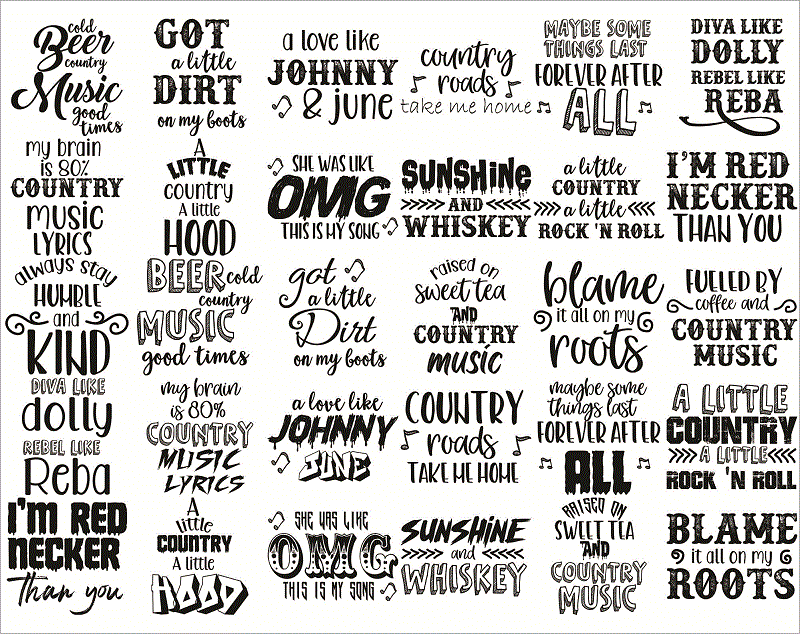 cold
Beer
country
Music
good
times
my brain
is 80%
COUNTRY
music
LYRICS
always stay
HUMBLE
and
KIND
DIVA LIKE
dolly
REBEL LIKE
Reba
I'M RED
NECKER
Than you
GOT
a little
DIRT
on my boots
A
LITTLE
country
A little
HOOD
BEER cold
country
MUSIC
good times
my brain
is 80%
COUNTRY
MUSIC
LYRICS
A
little
COUNTRY
A little
HOOD
a love like
JOHNNY
& june
SHE WAS LIKE
OMG
THIS IS MY SONG
got
a little
Dirt
on my boots
a love like
JOHNNY
JUNE
SHE WAS LIKE
OMG
THIS IS MY SONG
country
roads
take me home
SUNSHINE
AND
WHISKEY
raised on
sweet tea
AND
COUNTRY
music
COUNTRY
roads
TAKE ME HOME
SUNSHINE
and
WHISKEY
MAYBE SOME
THINGS LAST
FOREVER AFTER
ALL
a little
COUNTRY
a little
ROCK 'N ROLL
blame
it all on my
roots
maybe some
things last
FOREVER AFTER
ALL
RAISED ON
SWEET TEA
AND
COUNTRY
MUSIC
DIVA LIKE
DOLLY
REBEL LIKE
REBA
I'M RED
NECKER
THAN YOU
FUELED BY
coffee and
COUNTRY
MUSIC
A LITTLE
COUNTRY
A LITTLE
ROCK 'N ROLL
BLAME
it all on my
ROOTS